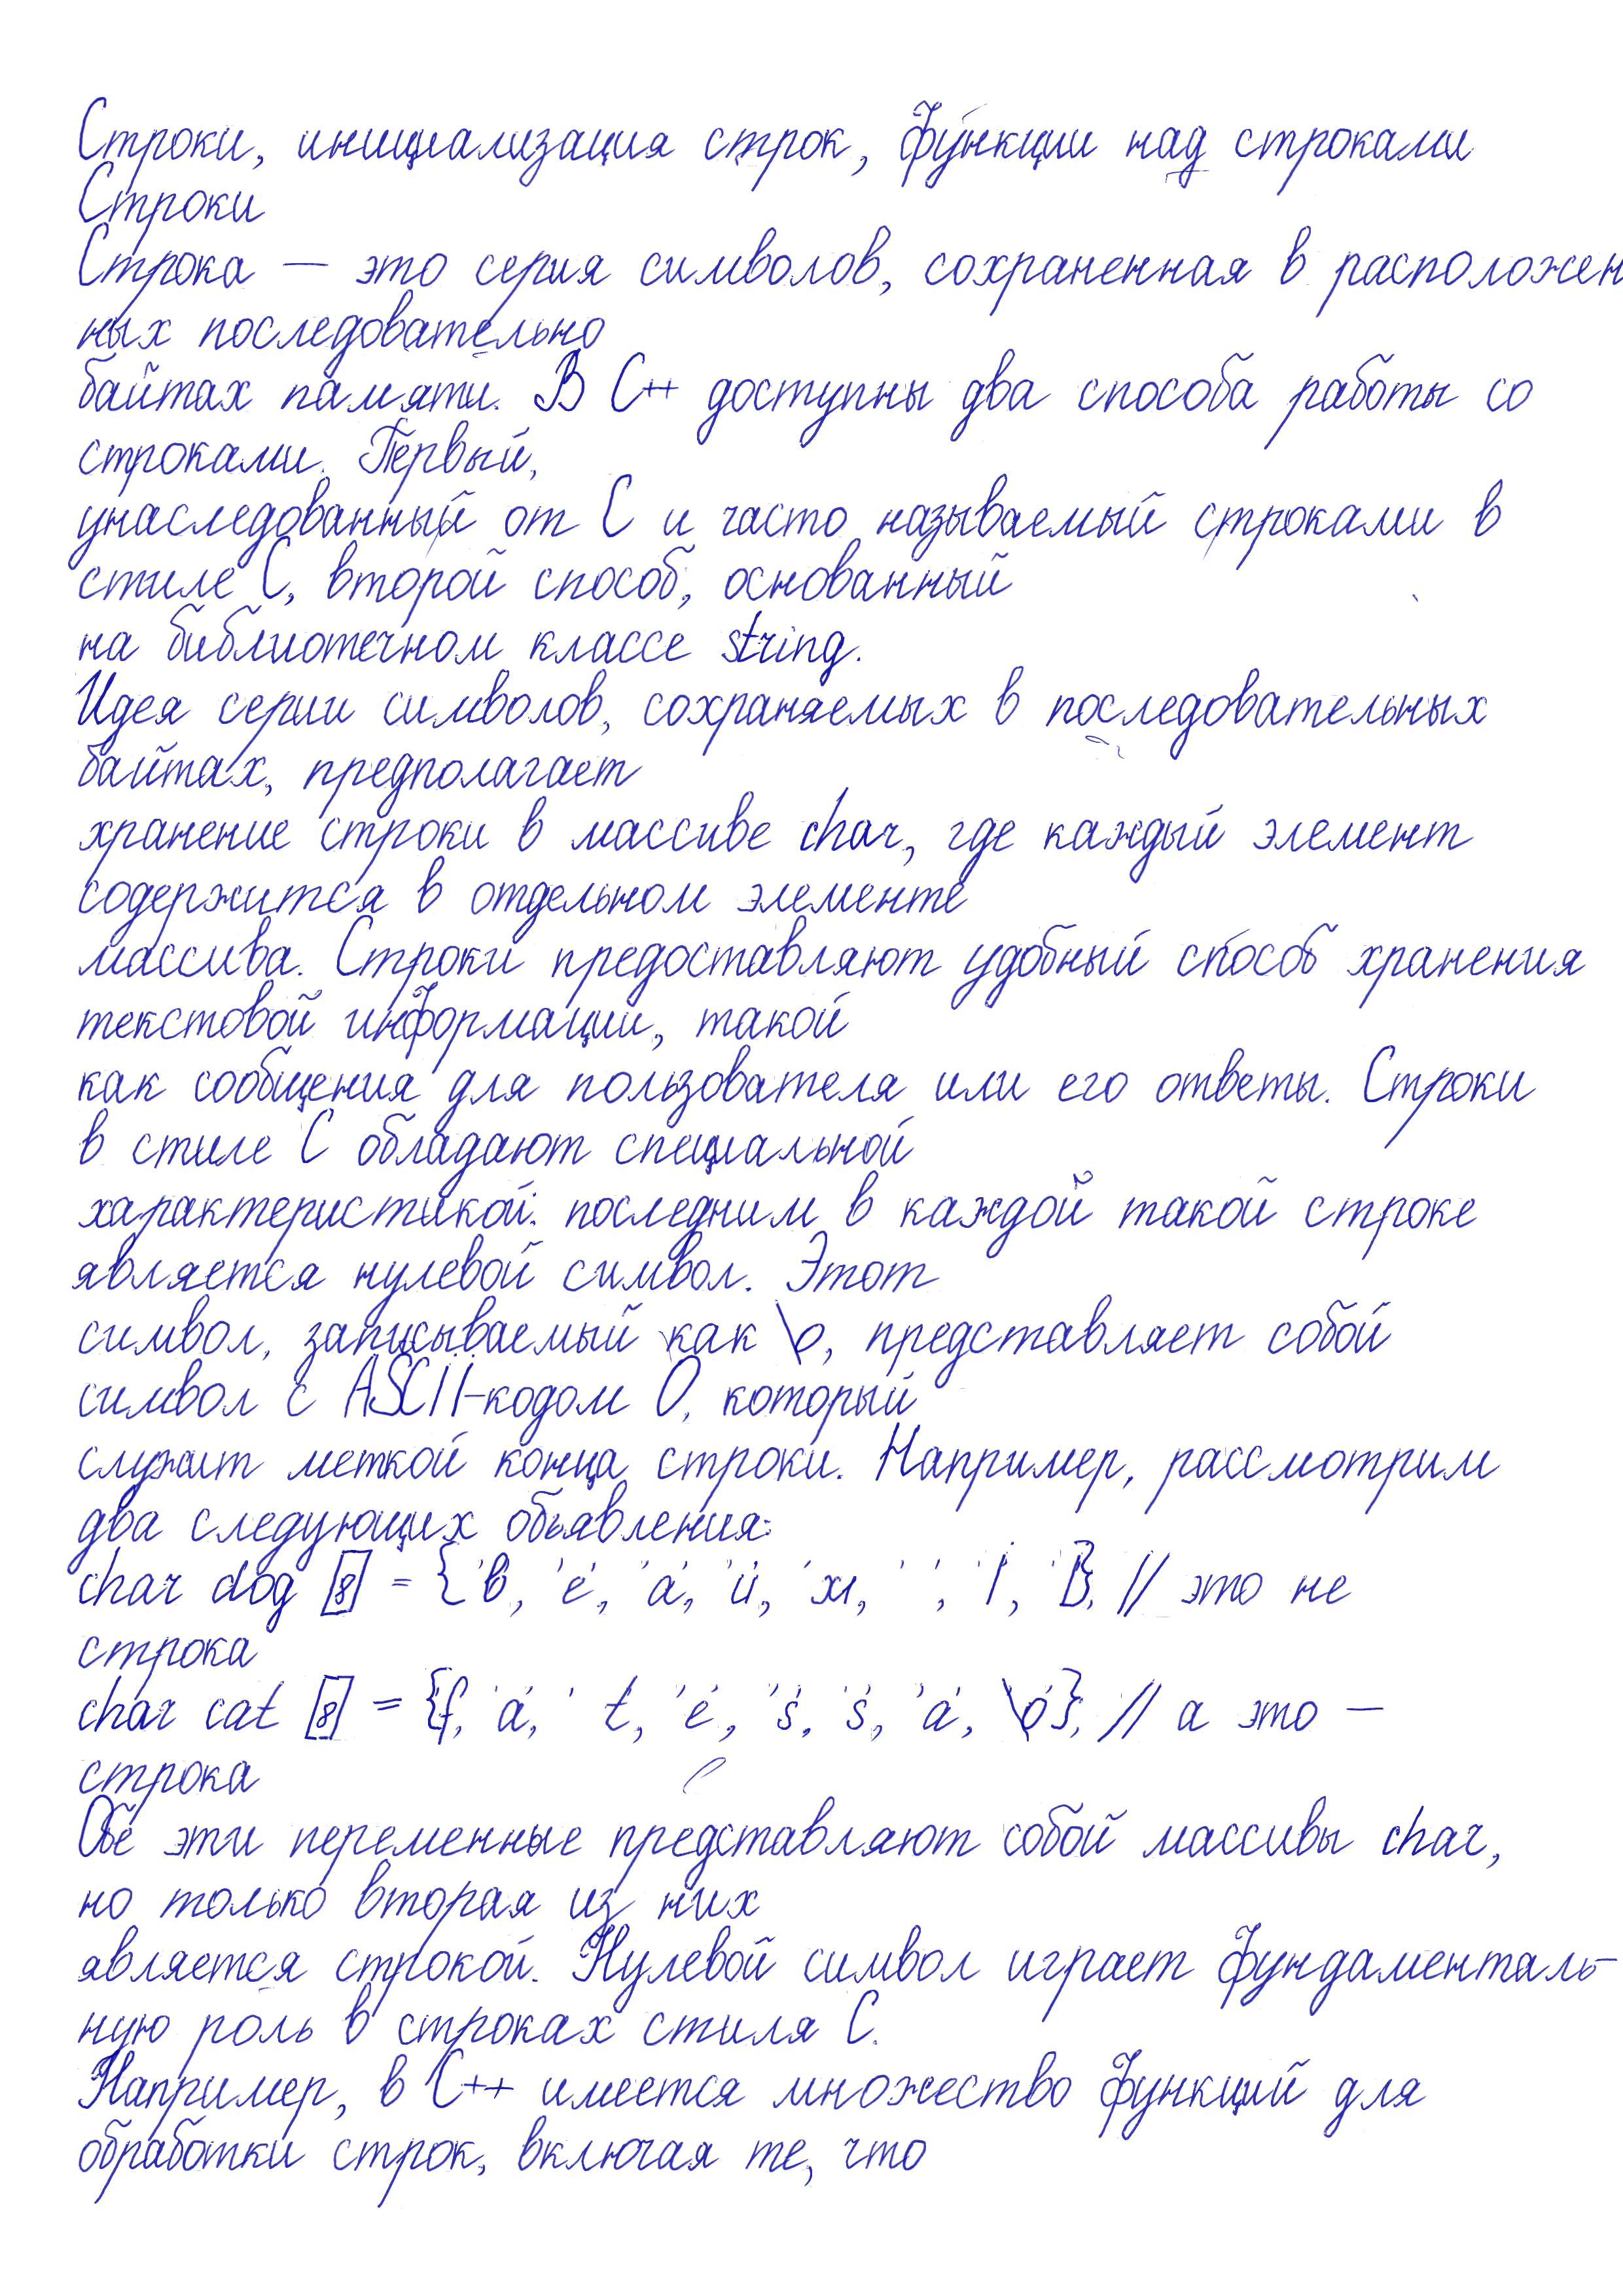 Строки, инициализация строк, функции над строками
Строки
Строка — это серия символов, сохраненная в расположен
ных последовательно
байтах памяти. В C++ доступны два способа работы со
строками. Первый,
унаследованный от С и часто называемый строками в
стиле С, второй способ, основанный
на библиотечном классе string.
Идея серии символов, сохраняемых в последовательных
байтах, предполагает
хранение строки в массиве char, где каждый элемент
содержится в отдельном элементе
массива. Строки предоставляют удобный способ хранения
текстовой информации, такой
как сообщения для пользователя или его ответы. Строки
в стиле С обладают специальной
характеристикой: последним в каждой такой строке
является нулевой символ. Этот
символ, записываемый как \о, представляет собой
символ с ASCII-кодом 0, который
служит меткой конца строки. Например, рассмотрим
два следующих объявления:
char dog [8] = { 'b', 'e', 'a', 'u', 'x', ' ', 'I', 'I'}; // это не
строка
char cat [8] = {'f', 'a', 't', 'e', 's', 's', 'a', '\o'}; // а это —
строка
Обе эти переменные представляют собой массивы char,
но только вторая из них
является строкой. Нулевой символ играет фундаменталь-
ную роль в строках стиля С.
Например, в C++ имеется множество функций для
обработки строк, включая те, что